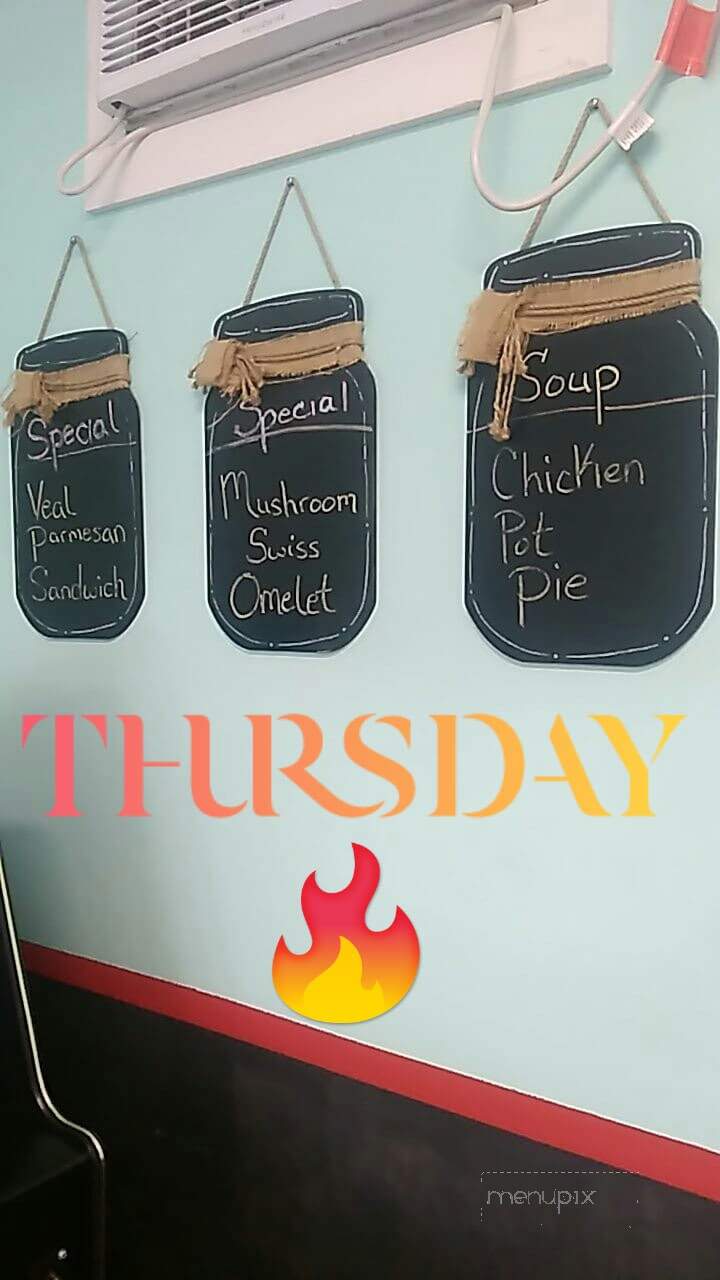 Special
Veal
Parmesan
Sandwich
Special
Mushroom
Swiss
Omelet
Soup
Chicken
Pot
Pie
THURSDAY
menupix